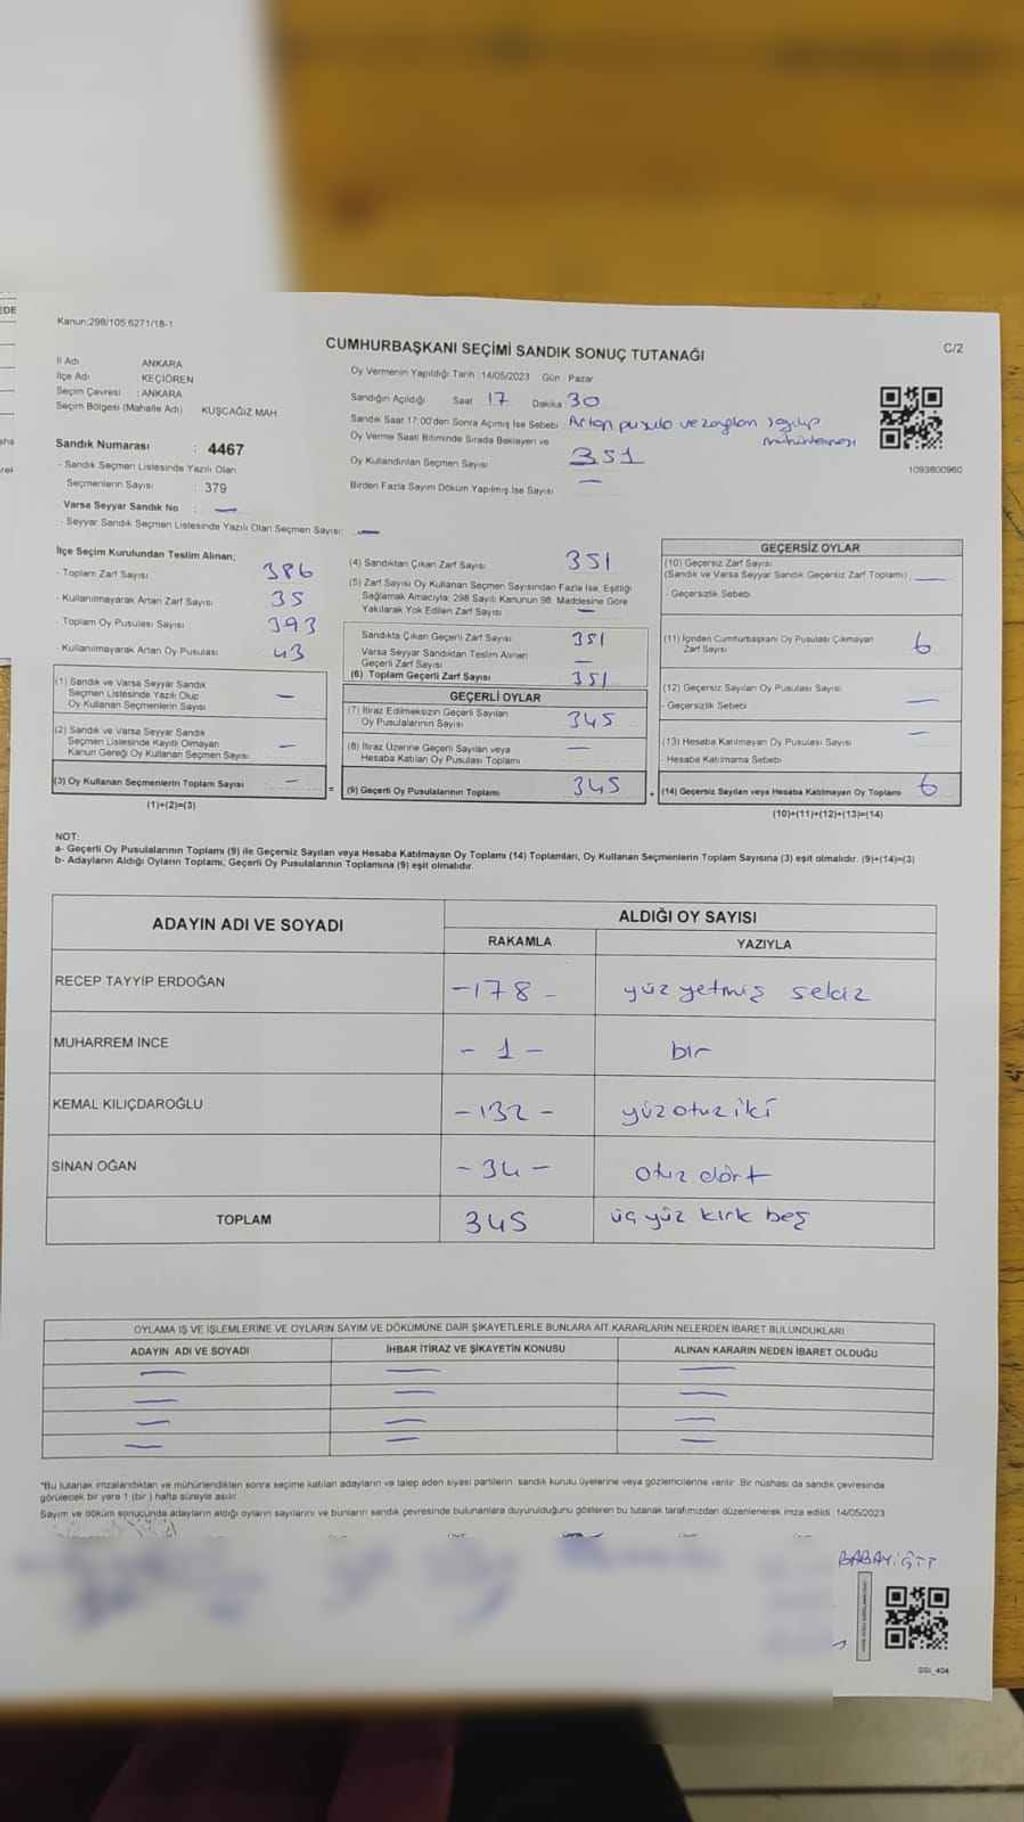 EDE
Kanun:298/105.6271/18-1
CUMHURBAŞKANI SEÇİMİ SANDIK SONUÇ TUTANAĞI
C/2
İl Adı ANKARA
İlçe Adı KEÇİÖREN
Seçim Çevresi : ANKARA
Seçim Bölgesi (Mahalle Adı) KUŞCAĞIZ MAH.
Sandık Numarası : 4467
- Sandık Seçmen Listesinde Yazılı Olan
Seçmenlerin Sayısı : 379
- Varsa Seyyar Sandık No : —
- Seyyar Sandık Seçmen Listesinde Yazılı Olan Seçmen Sayısı: —
Oy Vermenin Yapıldığı Tarih :14/05/2023 Gün : Pazar
Sandığın Açıldığı Saat 17 Dakika 30
Sandık Saat 17:00'den Sonra Açılmış İse Sebebi Artan pusula ve zarfları sayılıp
mühürlenmesi
Oy Verme Saati Bitiminde Sırada Bekleyen ve
Oy Kullandırılan Seçmen Sayısı 351
Birden Fazla Sayım Döküm Yapılmış İse Sayısı —
1093600960
İlçe Seçim Kurulundan Teslim Alınan;
- Toplam Zarf Sayısı 386
- Kullanılmayarak Artan Zarf Sayısı 35
- Toplam Oy Pusulası Sayısı 393
- Kullanılmayarak Artan Oy Pusulası 43
(1) Sandık ve Varsa Seyyar Sandık
Seçmen Listesinde Yazılı Olup
Oy Kullanan Seçmenlerin Sayısı —
(2) Sandık ve Varsa Seyyar Sandık
Seçmen Listesinde Kayıtlı Olmayan
Kanun Gereği Oy Kullanan Seçmen Sayısı —
(3) Oy Kullanan Seçmenlerin Toplam Sayısı —
(1)+(2)=(3)
=
(4) Sandıktan Çıkan Zarf Sayısı 351
(5) Zarf Sayısı Oy Kullanan Seçmen Sayısından Fazla İse, Eşitliği
Sağlamak Amacıyla; 298 Sayılı Kanunun 98. Maddesine Göre
Yakılarak Yok Edilen Zarf Sayısı —
Sandıkta Çıkan Geçerli Zarf Sayısı 351
Varsa Seyyar Sandıktan Teslim Alınan
Geçerli Zarf Sayısı —
(6) Toplam Geçerli Zarf Sayısı 351
GEÇERLİ OYLAR
(7) İtiraz Edilmeksizin Geçerli Sayılan
Oy Pusulalarının Sayısı 345
(8) İtiraz Üzerine Geçerli Sayılan veya
Hesaba Katılan Oy Pusulası Toplamı —
(9) Geçerli Oy Pusulalarının Toplamı 345
+
GEÇERSİZ OYLAR
(10) Geçersiz Zarf Sayısı
(Sandık ve Varsa Seyyar Sandık Geçersiz Zarf Toplamı) —
- Geçersizlik Sebebi
(11) İçinden Cumhurbaşkanı Oy Pusulası Çıkmayan
Zarf Sayısı 6
(12) Geçersiz Sayılan Oy Pusulası Sayısı —
- Geçersizlik Sebebi
(13) Hesaba Katılmayan Oy Pusulası Sayısı —
Hesaba Katılmama Sebebi
(14) Geçersiz Sayılan veya Hesaba Katılmayan Oy Toplamı 6
(10)+(11)+(12)+(13)=(14)
NOT:
a- Geçerli Oy Pusulalarının Toplamı (9) ile Geçersiz Sayılan veya Hesaba Katılmayan Oy Toplamı (14) Toplamları, Oy Kullanan Seçmenlerin Toplam Sayısına (3) eşit olmalıdır. (9)+(14)=(3)
b- Adayların Aldığı Oyların Toplamı, Geçerli Oy Pusulalarının Toplamına (9) eşit olmalıdır.
ADAYIN ADI VE SOYADI
ALDIĞI OY SAYISI
RAKAMLA YAZIYLA
RECEP TAYYİP ERDOĞAN -178- yüz yetmiş sekiz
MUHARREM İNCE -1- bir
KEMAL KILIÇDAROĞLU -132- yüz otuz iki
SİNAN OĞAN -34- otuz dört
TOPLAM 345 üç yüz kırk beş
OYLAMA İŞ VE İŞLEMLERİNE VE OYLARIN SAYIM VE DÖKÜMÜNE DAİR ŞİKAYETLERLE BUNLARA AİT KARARLARIN NELERDEN İBARET BULUNDUKLARI
ADAYIN ADI VE SOYADI İHBAR İTİRAZ VE ŞİKAYETİN KONUSU ALINAN KARARIN NEDEN İBARET OLDUĞU
— — —
— — —
— — —
— — —
*Bu tutanak imzalandıktan ve mühürlendikten sonra seçime katılan adayların ve talep eden siyasi partilerin sandık kurulu üyelerine veya gözlemcilerine verilir. Bir nüshası da sandık çevresinde
görülecek bir yere 1 (bir ) hafta süreyle asılır.
Sayım ve döküm sonucunda adayların aldığı oyların sayılarını ve bunların sandık çevresinde bulunanlara duyurulduğunu gösteren bu tutanak tarafımızdan düzenlenerek imza edildi. 14/05/2023
BABAYİĞİT